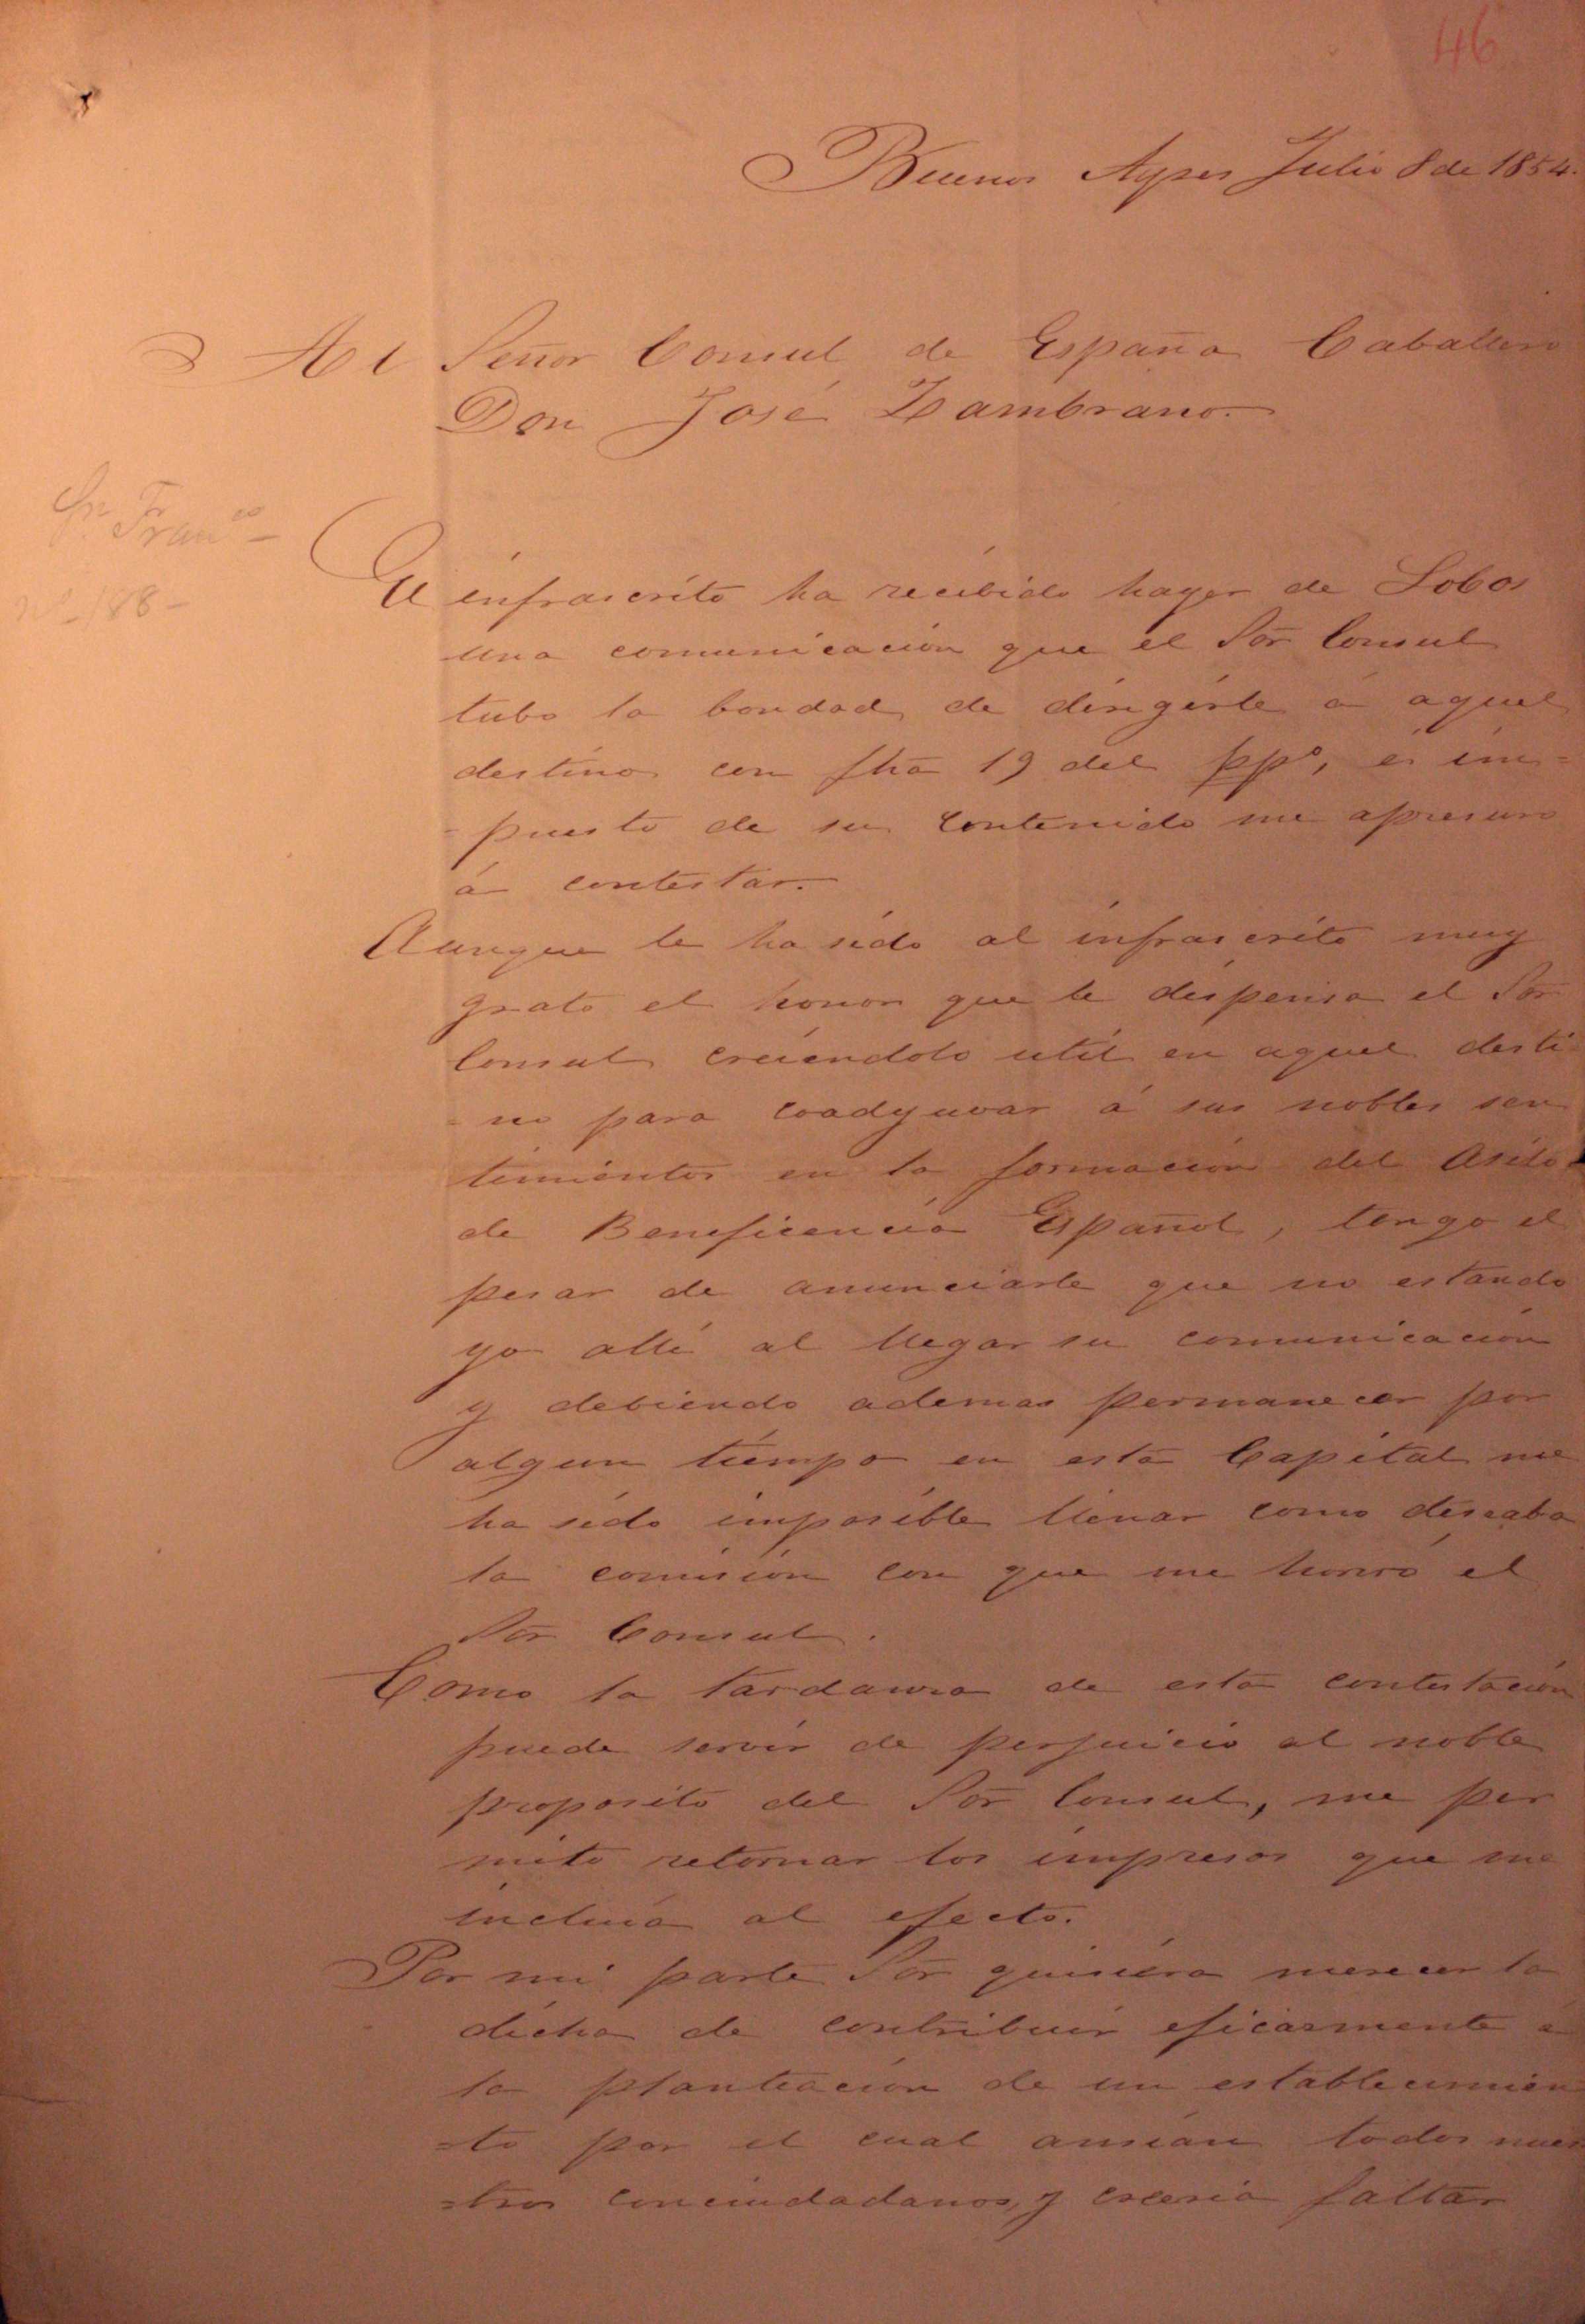 46
Buenos Ayres Julio 8 de 1854.
Al Señor Consul de España Caballero
Don José Zambrano.
Sn. Franco
No. 188
El infrascrito ha recibido hayer de Lobos
una comunicacion que el Sor Consul
tubo la bondad de dirigirle á aquel
destino con fha 19 del pp°, é im=
=puesto de su contenido me apresuro
á contestar.
Aunque le ha sido al infrascrito muy
grato el honor que le dispensa el Sor
Consul creiendolo util en aquel desti
=no para coadyuvar á sus nobles sen
timientos en la formacion del Asilo
de Beneficencia Español, tengo el
pesar de anunciarle que no estando
yo alli al llegar su comunicacion
y debiendo ademas permanecer por
algun tiempo en esta Capital me
ha sido imposible llenar como deseaba
la comision con que me honró el
Sor Consul.
Como la tardansa de esta contestacion
puede servir de perjuicio al noble
proposito del Sor Consul, me per
mito retornar los impresos que me
incluia al efecto.
Por mi parte Sor quisiera merecer la
dicha de contribuir eficasmente á
la planteacion de un establecimien
=to por el cual ansian todos nues
=tros conciudadanos, y creeria faltar